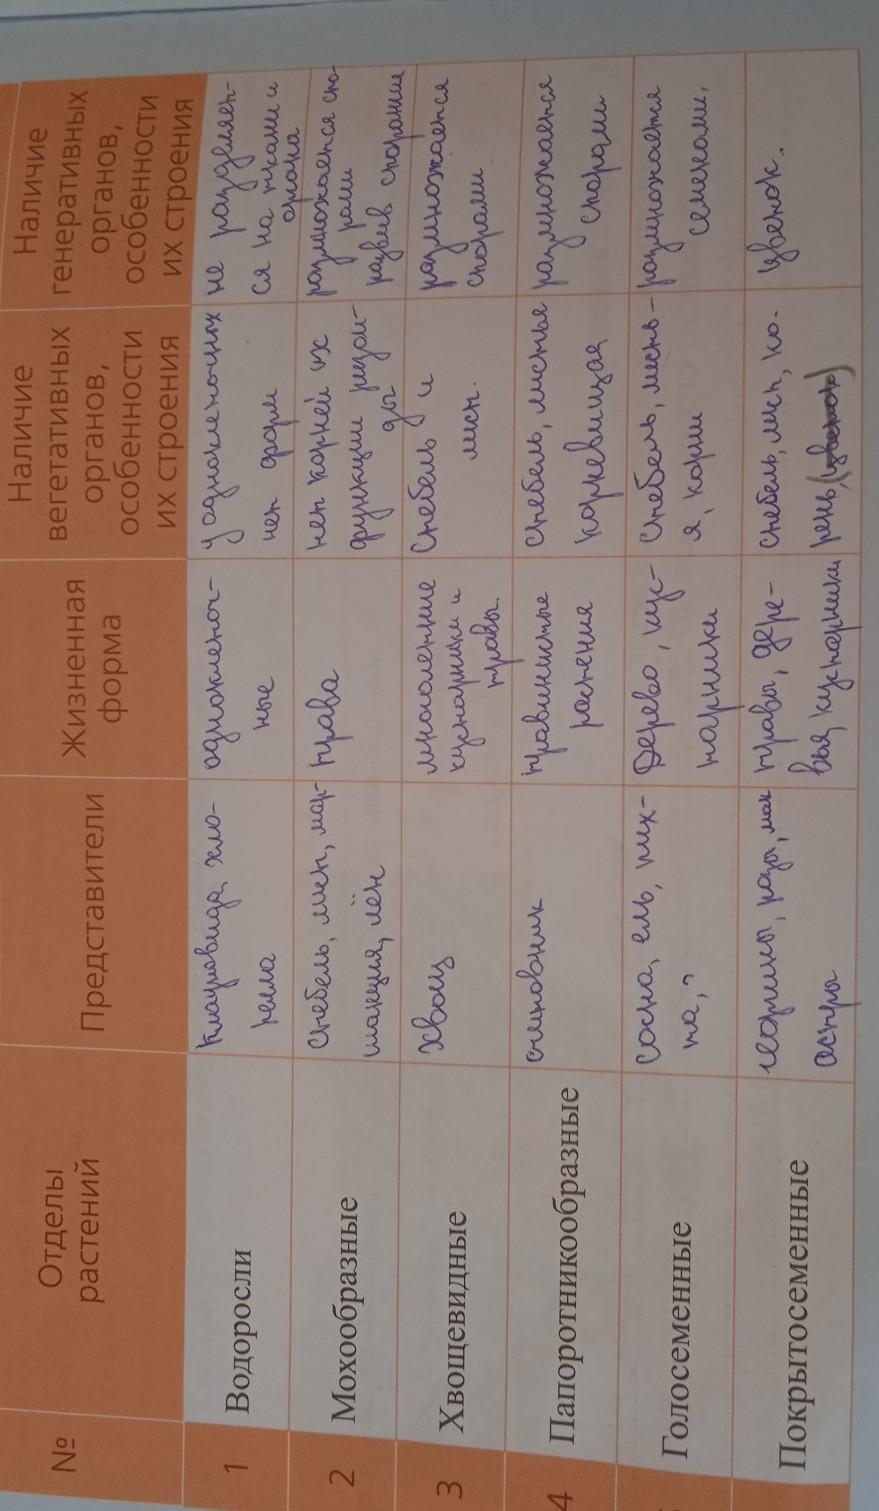 №
Отделы
растений
Представители
Жизненная
форма
Наличие
вегетативных
органов,
особенности
их строения
Наличие
генеративных
органов,
особенности
их строения
1
Водоросли
одноклеточ-
ные
у одноклеточных
нет форм
не разделяет-
ся на ткани и
2
Мохообразные
стебель, лист, мар-
шанция, лён
трава
нет корней их
функции ризои-
ды
размножается спо-
рами
3
Хвощевидные
хвощ
многолетние
кустарники и
травы.
стебель и
лист.
размножается
спорами
4
Папоротникообразные
травянистые
растения
стебель, листья
корневищая
размножается
спорами
Голосеменные
сосна, ель, пих-
та, ?
дерево, кус-
тарники
стебель, листь-
я, корни
размножается
семенами,
Покрытосеменные
розы, мак
астры
травы, дере-
вья, кустарники
стебель, лист, ко-
рень, (цветок)
цветок.